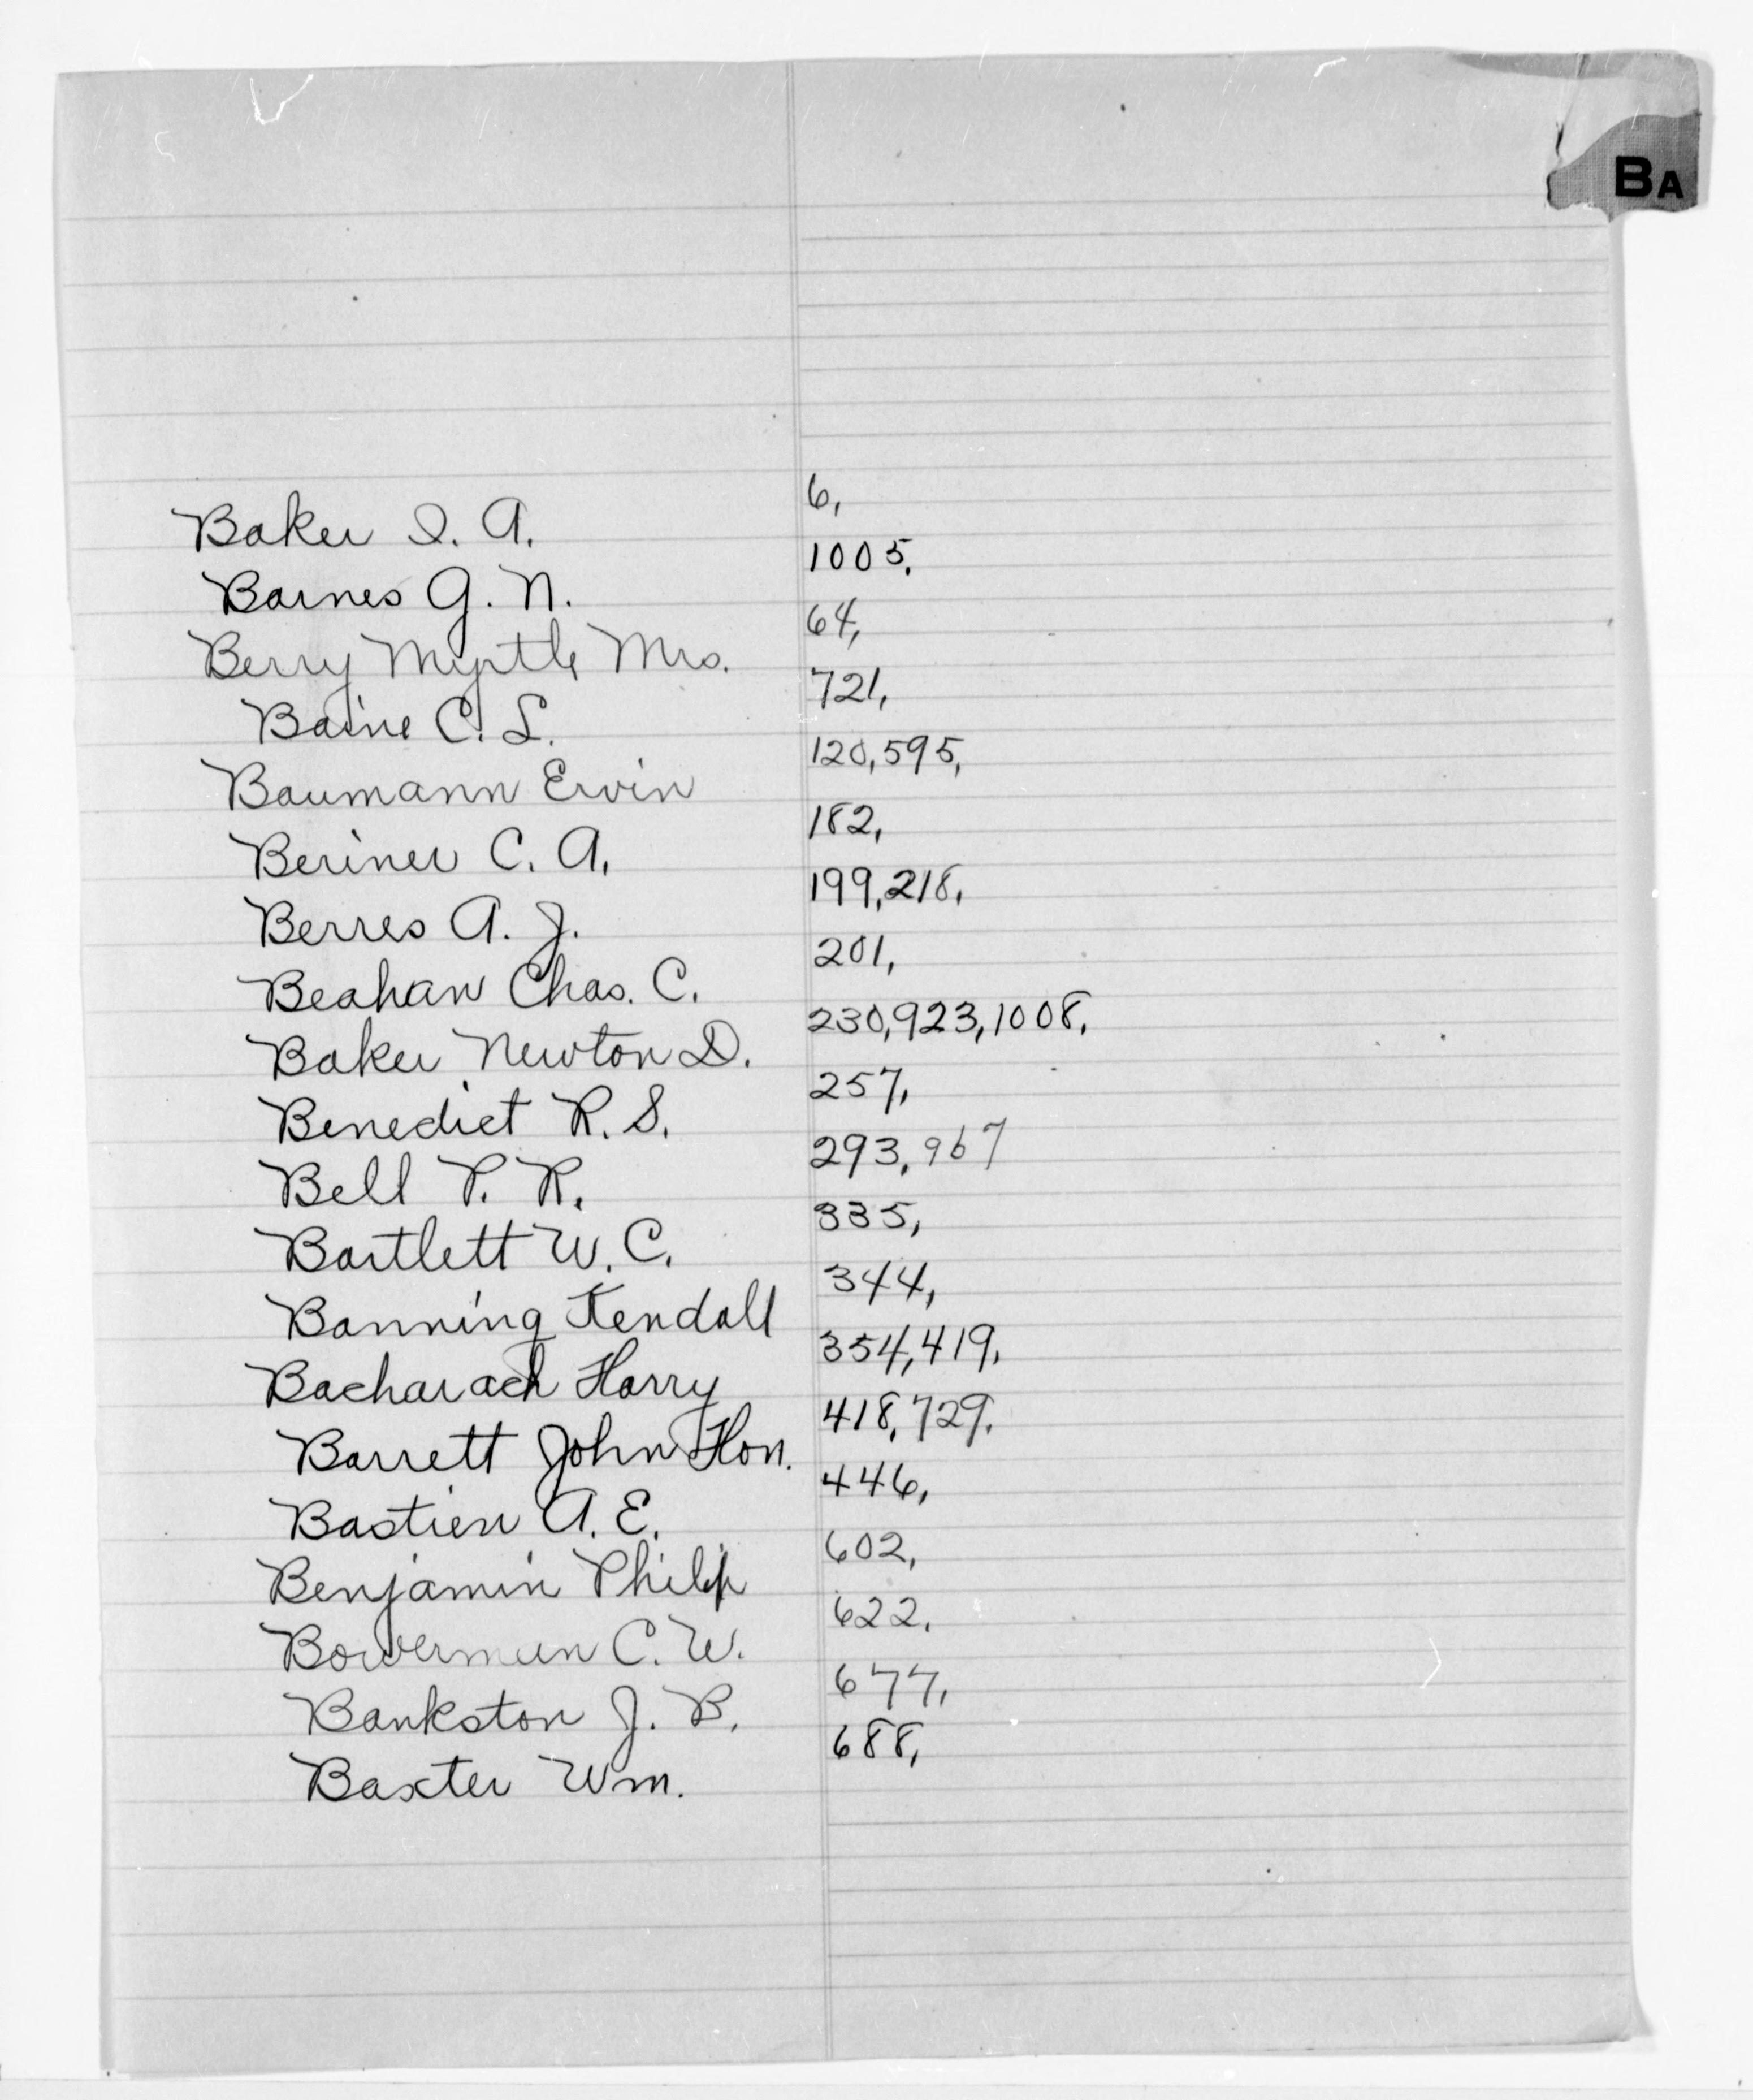 BA
Baker I. A. 6,
Barnes G. N. 1005,
Berry Myrtle Mrs. 64,
Baine C. L. 721,
Baumann Ervin 120,595,
Beriner C. A. 182,
Berres A. J. 199,218,
Beahan Chas. C. 201,
Baker Newton D. 230,923,1008,
Benedict R. S. 257,
Bell P. R. 293,967
Bartlett W. C. 335,
Banning Kendall 344,
Bacharach Harry 354,419,
Barrett John Hon. 418,729,
Bastien A. E. 446,
Benjamin Philip 602,
Bowerman C. W. 622,
Bankston J. B. 677,
Baxter Wm. 688,